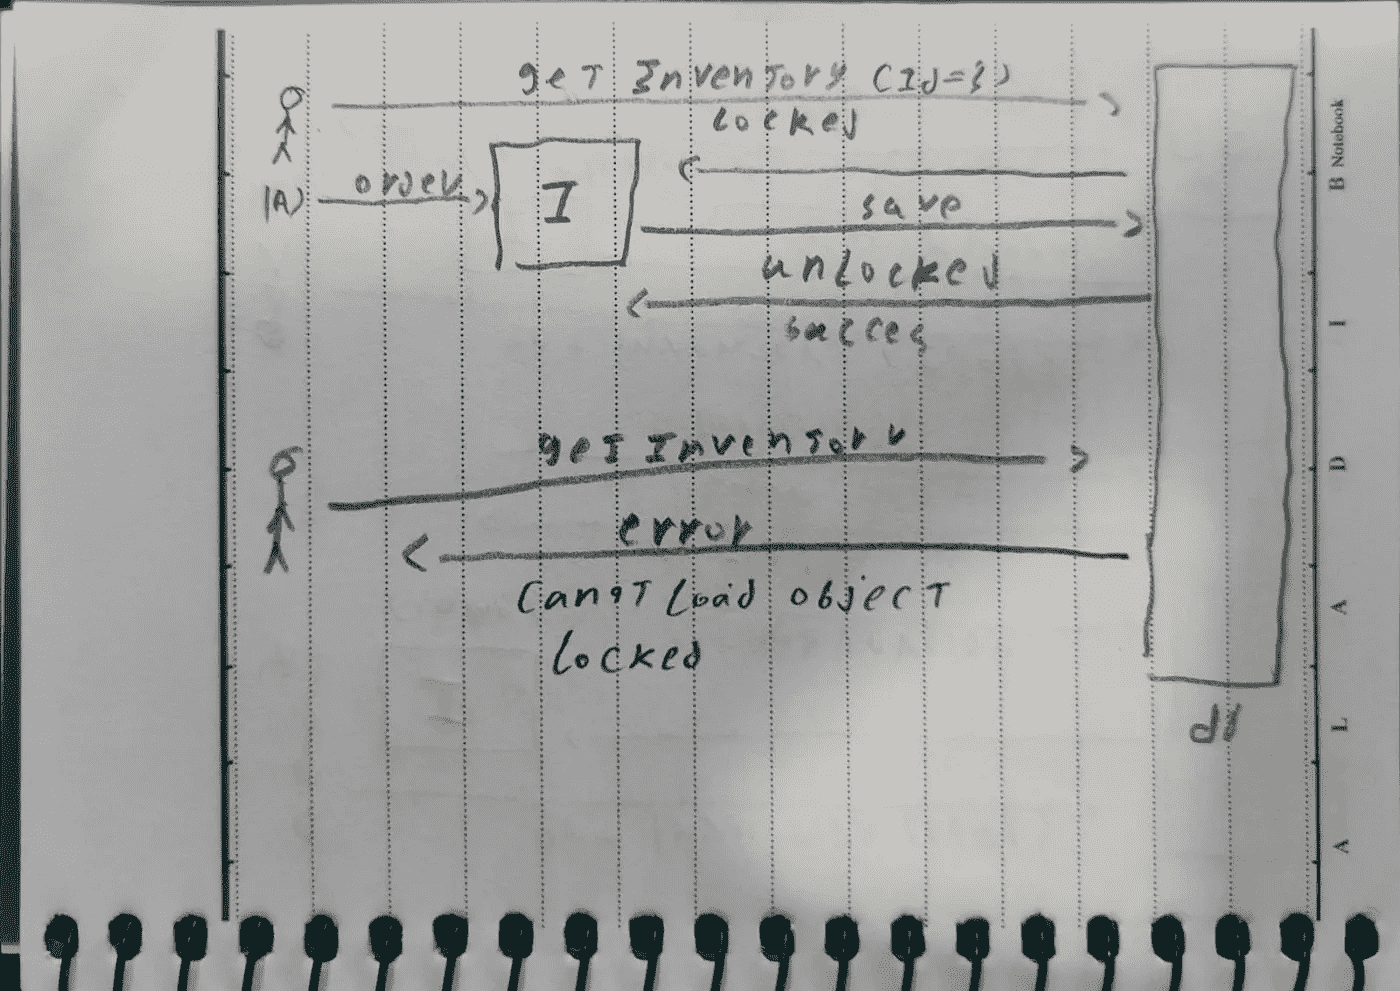 get Inventory (Id=3)
locked
(A) order
I
save
unlocked
succes
get Inventory
error
Can't Load object
locked
db
B Notebook
I
D
A
L
A